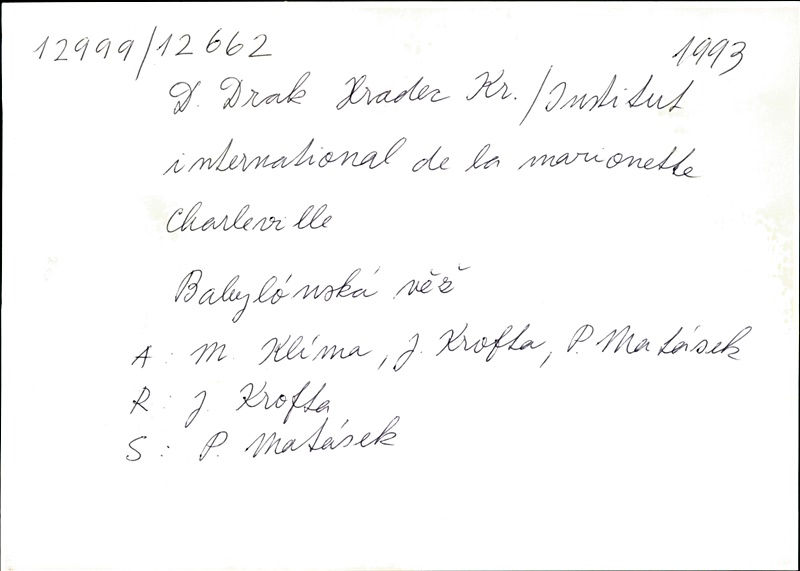 12999/12662
1993
D. Drak Hradec Kr./Institut
international de la marionette
Charleville
Babylónská věž
A: M. Klíma, J. Krofta, P. Matásek
R: J. Krofta
S: P. Matásek